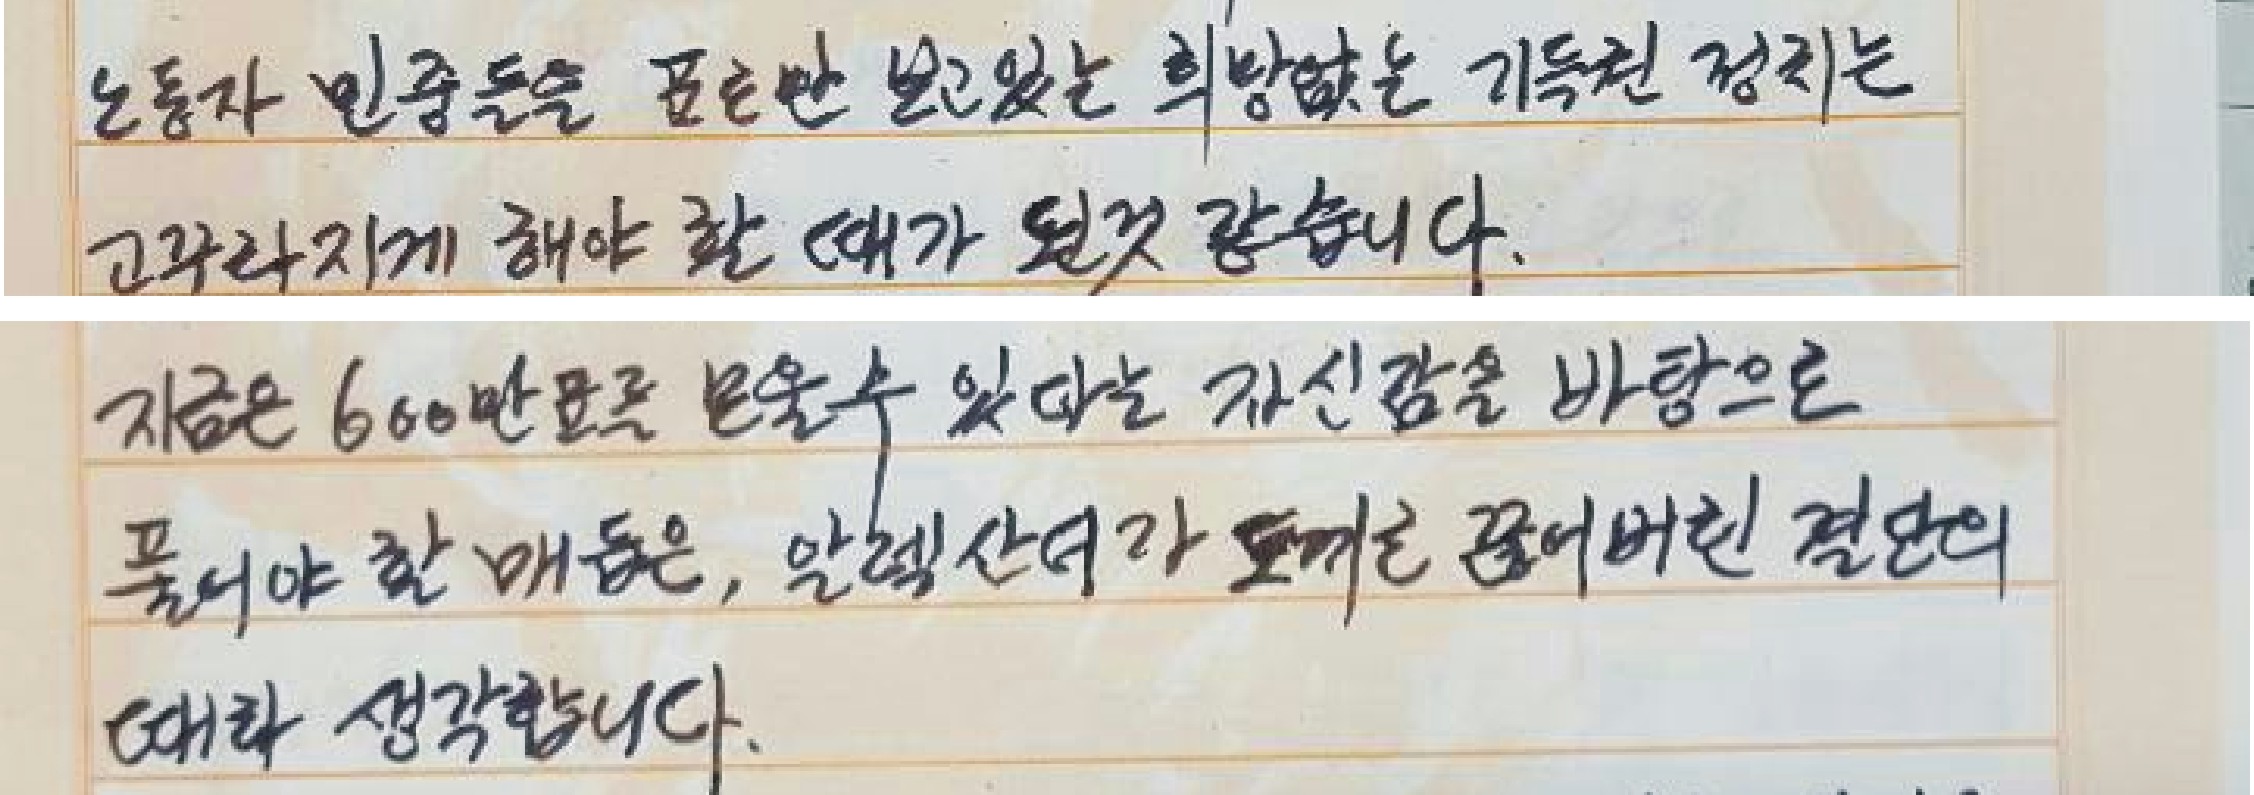 노동자 민중들을 표로만 보고있는 희망없는 기득권 정치는
고꾸라지게 해야 할 때가 된것 같습니다.
지금은 600만표를 모을수 있다는 자신감을 바탕으로
풀어야 할 매듭은, 알렉산더가 도끼로 끊어버린 결단의
때라 생각합니다.